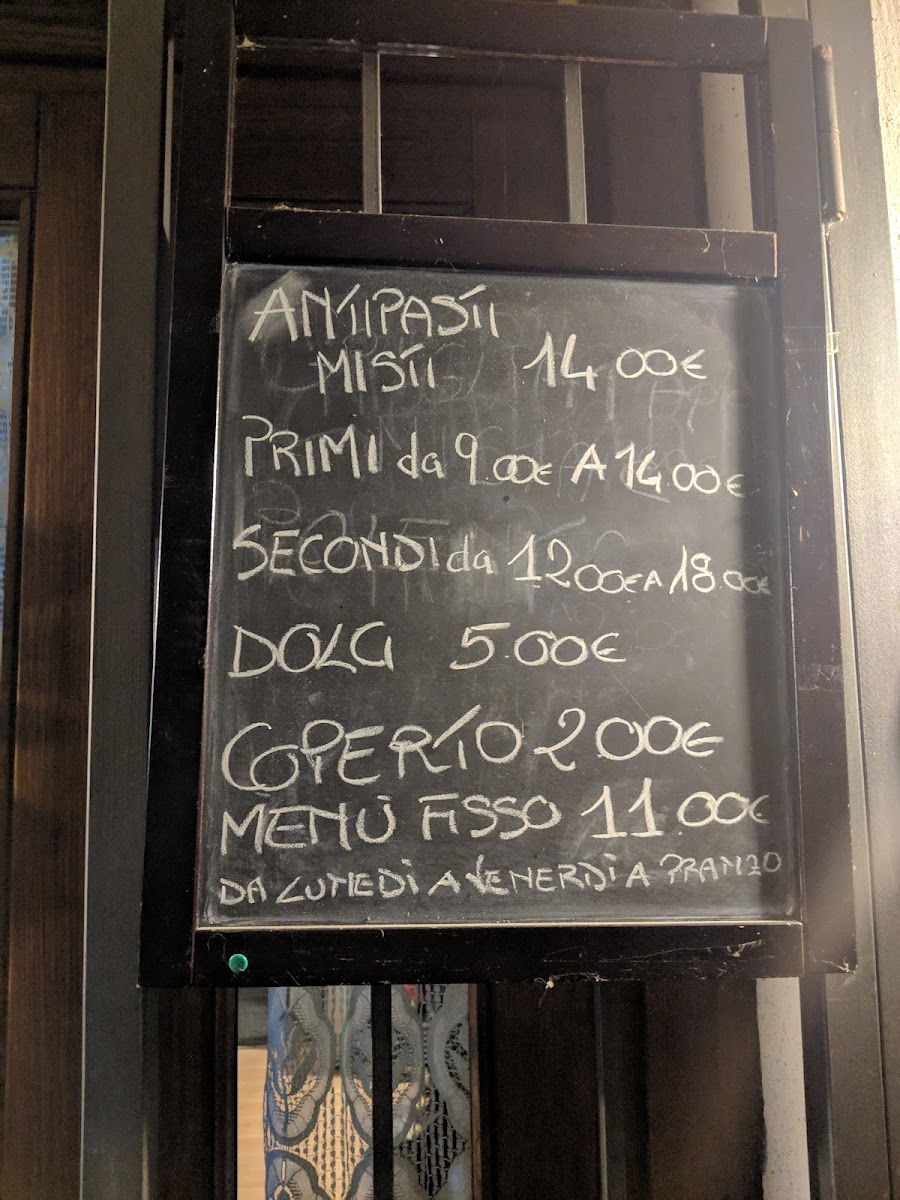 ANTIPASTI
MISTI 14 00€
PRIMI da 9.00€ A 14.00€
SECONDI da 12 00€ A 18.00€
DOLCI 5.00€
COPERTO 2 00€
MENÚ FISSO 11.00€
DA LUNEDÌ A VENERDÌ A PRANZO